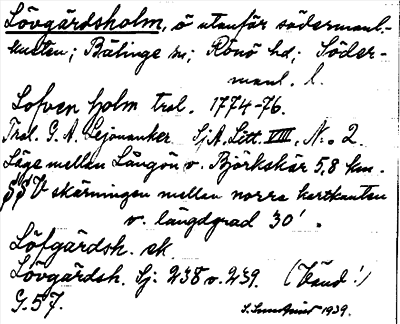 Lövgärdsholm, ö utanför södermanl.-
kusten; Bälinge sn; Rönö hd; Söder-
manl. l.
Lofven holm tral. 1774-76.
Tral. G. A. Lejonanker SjA. Litt. VIII, N:o 2
Läge mellan Långön v. Björkskär 5,8 km.
SSV skärningen mellan norra kartkanten
v. längdgrad 30'.
Löfgärdsh. ek
Lövgärdsh. Sj: 238 v. 239. (Känd!)
G. 57.
1939.